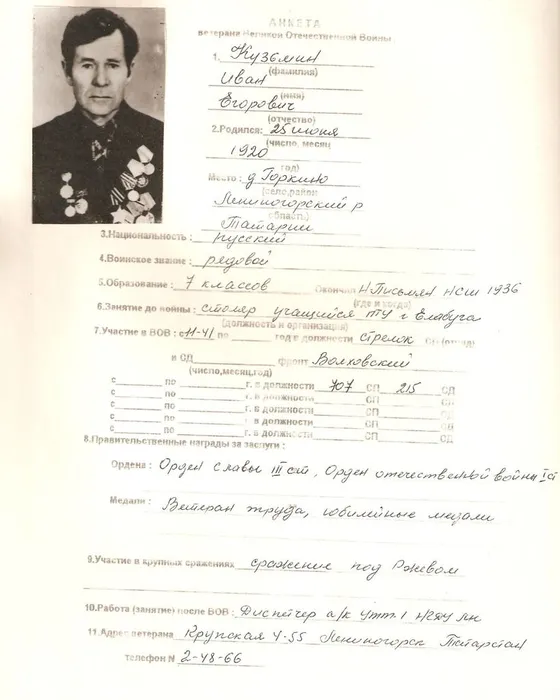 АНКЕТА
ветерана Великой Отечественной Войны
1. Кузьмин
(фамилия)
Иван
(имя)
Егорович
(отчество)
2.Родился: 25 июня
(число, месяц
1920
год)
Место: д Горкино
(село,район
Лениногорский р
область)
Татарии
3.Национальность: русский
4.Воинское звание: рядовой
5.Образование: 7 классов Окончил Н.Письмян НСШ 1936
(где и когда)
6.Занятие до войны: столяр учащийся ТУ г Елабуга
(должность и организация)
7.Участие в ВОВ: с 11-41 по ____ год в должности стрелок СП
в СД ____ фронт Волховский
(число,месяц,год)
с____ по ____ г. в должности 707 СП 215 СД
с____ по ____ г. в должности ____ СП ____ СД
с____ по ____ г. в должности ____ СП ____ СД
с____ по ____ г. в должности ____ СП ____ СД
с____ по ____ г. в должности ____ СП ____ СД
8.Правительственные награды за заслуги:
Ордена: Орден славы III ст, Орден отечественной войны I ст
Медали: Ветеран труда, юбилейные медали
9.Участие в крупных сражениях сражение под Ржевом
10.Работа (занятие) после ВОВ: Диспетчер а/к Утт-1 НГДУ лн
11.Адрес ветерана Крупская 4-55 Лениногорск Татарстан
телефон N 2-48-66